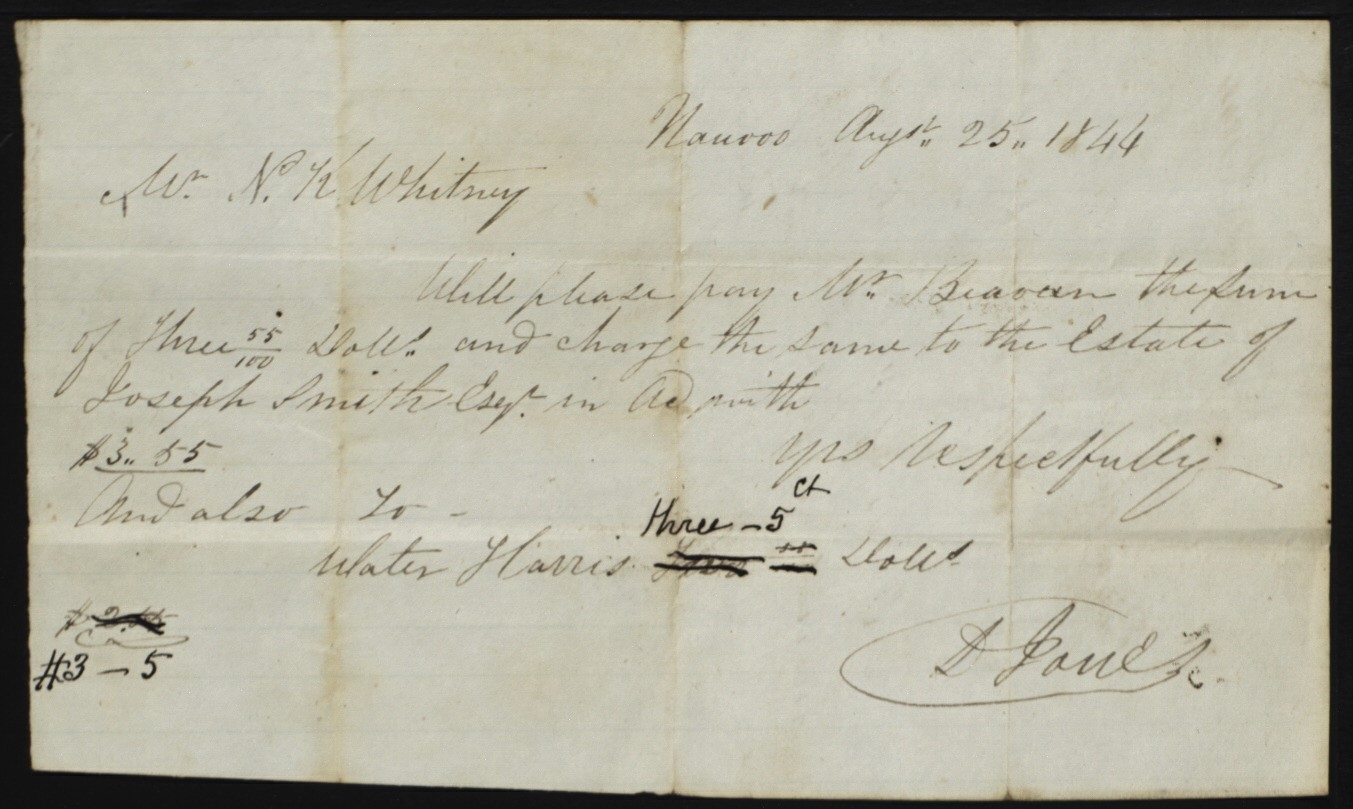 Nauvoo Augst. 25.. 1844
Mr. N. K. Whitney
Will please pay Mr. Beavan the sum
of Three 55/100 Dolls. and charge the same to the Estate of
Joseph Smith Esqr. in Ac with
$3.. 55
yrs Respectfully
And also To -
three - 5 ct
Water Harris Dolls
$
$3 - 5
D Jones